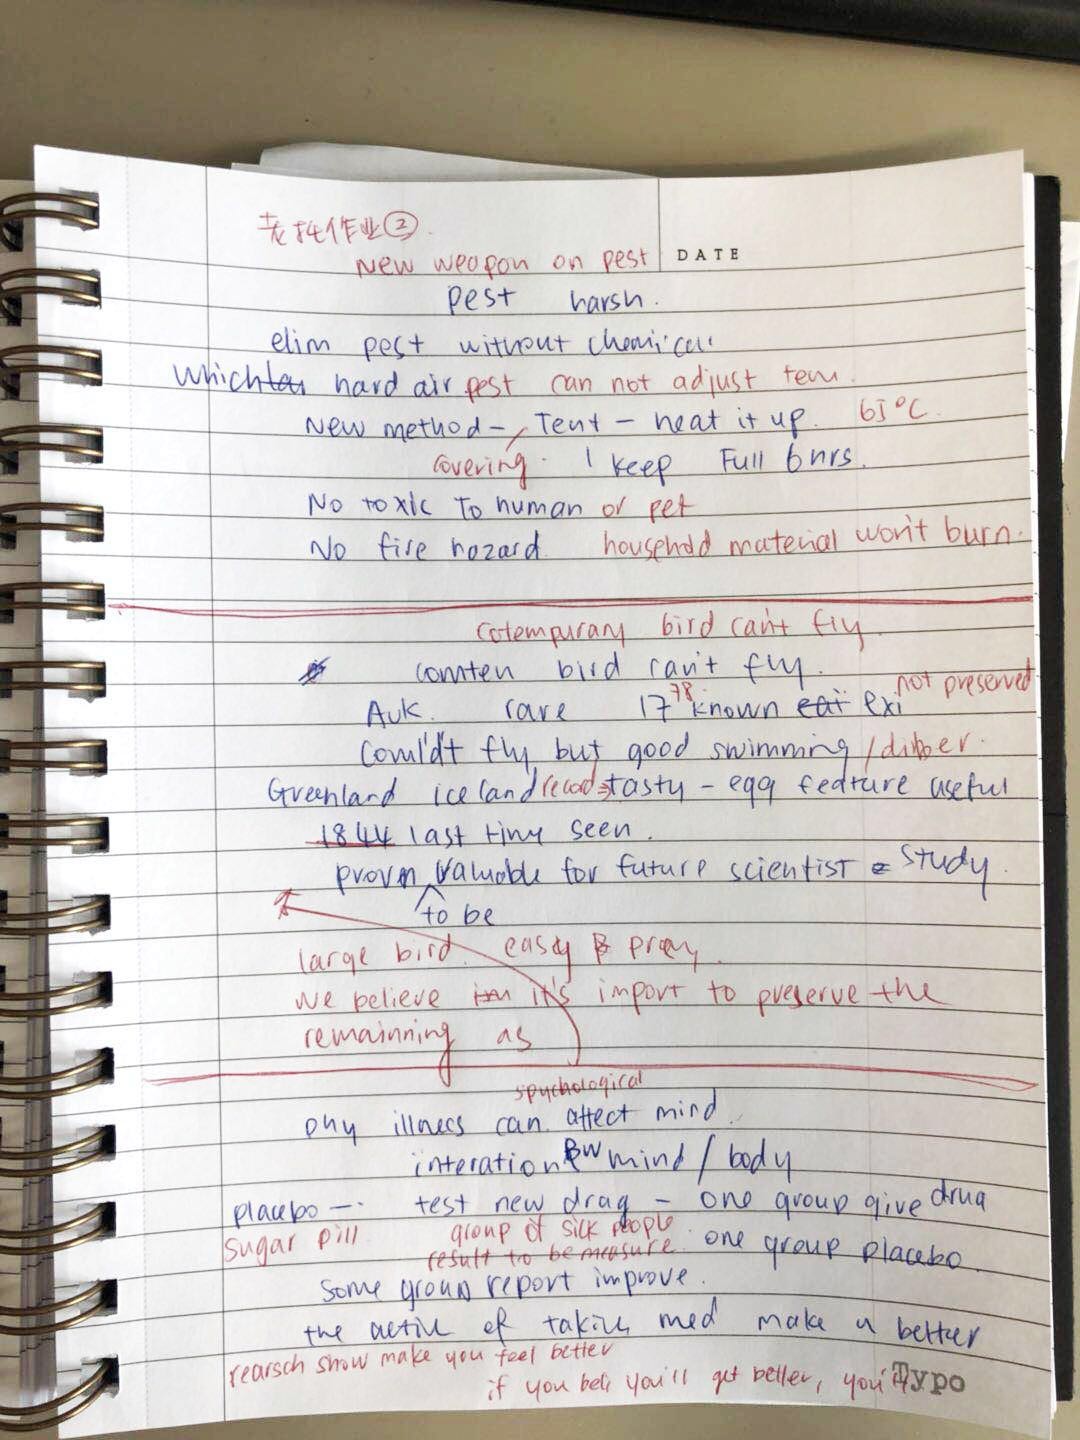 作业②
New weapon on pest DATE
pest harsh.
elim pest without chemical
Which hard air pest can not adjust tem
New method - Tent - heat it up 65°C.
covering. keep Full 6hrs.
No toxic To human or pet
No fire hazard. household material won't burn.
cotempurary bird can't fly
comten bird can't fly.
Auk. rare 17 78 known exi not preserved
Could't fly but good swimming /
Greenland iceland record tasty - egg feature useful
1844 last tiny seen.
proven valuable for future scientist study.
to be
large bird. easy prey.
We believe it's import to preserve the
remainning as
spychological
phy illness can affect mind.
interation BW mind / body
placebo — test new drag - one group give drug
sugar pill group of sick people
result to be measure. one group placebo.
Some group report improve.
the active of taking med make u better
rearsch show make you feel better
if you beli you'll get better, you'll
Typo